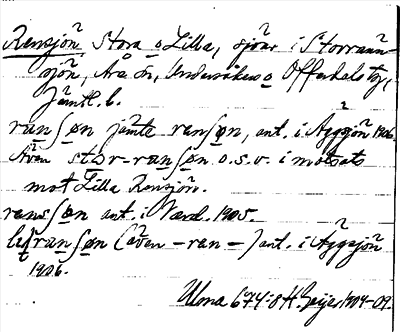 Rensjön Stora o Lilla, sjöar i Storrann-
sjön, Åre sn, Undersåkers o Offerdals tg,
Jämtl. l.
ranʃøn jämte renʃøn, ant. i Äggsjön 1906.
Även stor-ranʃøn o.s.v. i motsats
mot Lilla Rensjön.
ransʃøn ant. i Vard. 1905.
ranʃøn (även -ran-) ant. i Äggsjön
1906.
Ulma 674:8 H. Geijer 1904-09.